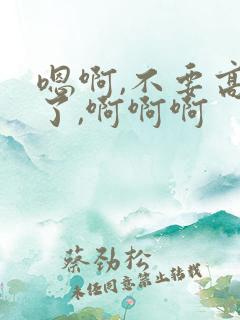 嗯啊,不要高
了,啊啊啊
蔡劲松
未经同意禁止转载